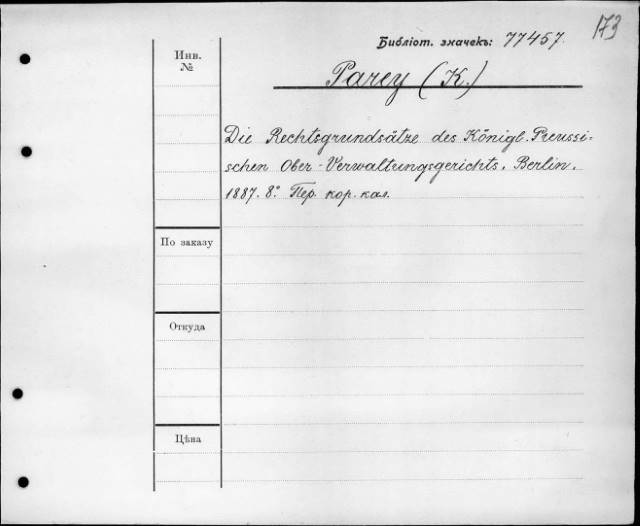 173
Библіот. значекъ: 77457.
Инв.
№
Parey (K.)
Die Rechtsgrundsätze des Königl. Preussi-
schen Ober-Verwaltungsgerichts. Berlin.
1887. 8.° Пер. кор. кал.
По заказу
Откуда
Цѣна